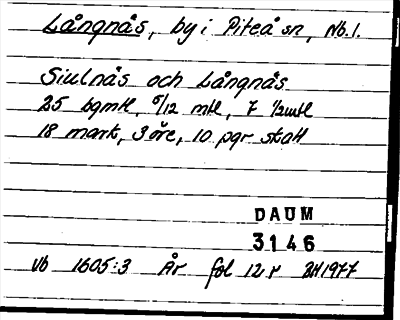 Långnäs, by i Piteå sn, Nb.l.
Siulnäs och Långnäs
25 bgmtl, 5/12 mtl, 7 1/2mtl
18 mark, 3 öre, 10 pgr skatt
DAUM
3146
Vb 1605:3 År fol 12r BH1977